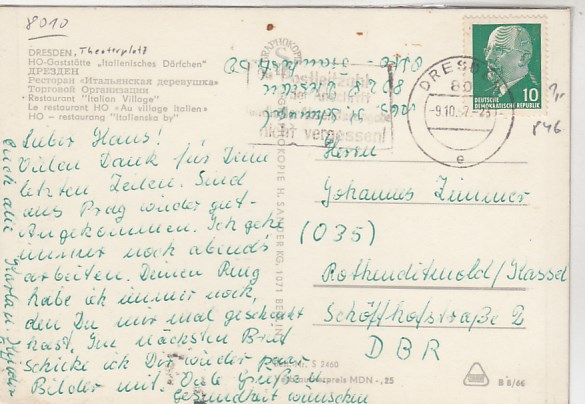 8010
DRESDEN, Theaterplatz
HO-Gaststätte „Italienisches Dörfchen"
ДРЕЗДЕН
Ресторан «Итальянская деревушка»
Торговой Организации
Restaurant "Italian Village"
Le restaurant HO «Au village italien»
HO – restaurang "Italienska by"
Lieber Hans!
Vielen Dank für Deine
letzten Zeilen. Sind
aus Prag wieder gut
Angekommen. Ich gehe
immer noch abends
arbeiten. Deinen Ring
habe ich immer noch,
den Du mir mal geschenkt
hast. Im nächsten Brief
schicke ich Dir wieder paar
Bilder mit. Viele Grüße u.
Gesundheit wünschen
Auch alle
Postleitzahl
nicht vergessen!
8028 Dresden
DRESDEN
80
-9.10.
e
DEUTSCHE
DEMOKRATISCHE REPUBLIK
10
846
Herrn
Johannes Zimmer
(035)
Rothenditmold/Kassel
Schöffhofstraße 2
DBR
H. SANDER KG, 1071 BERLIN
S 2460
MDN -,25
B 8/66